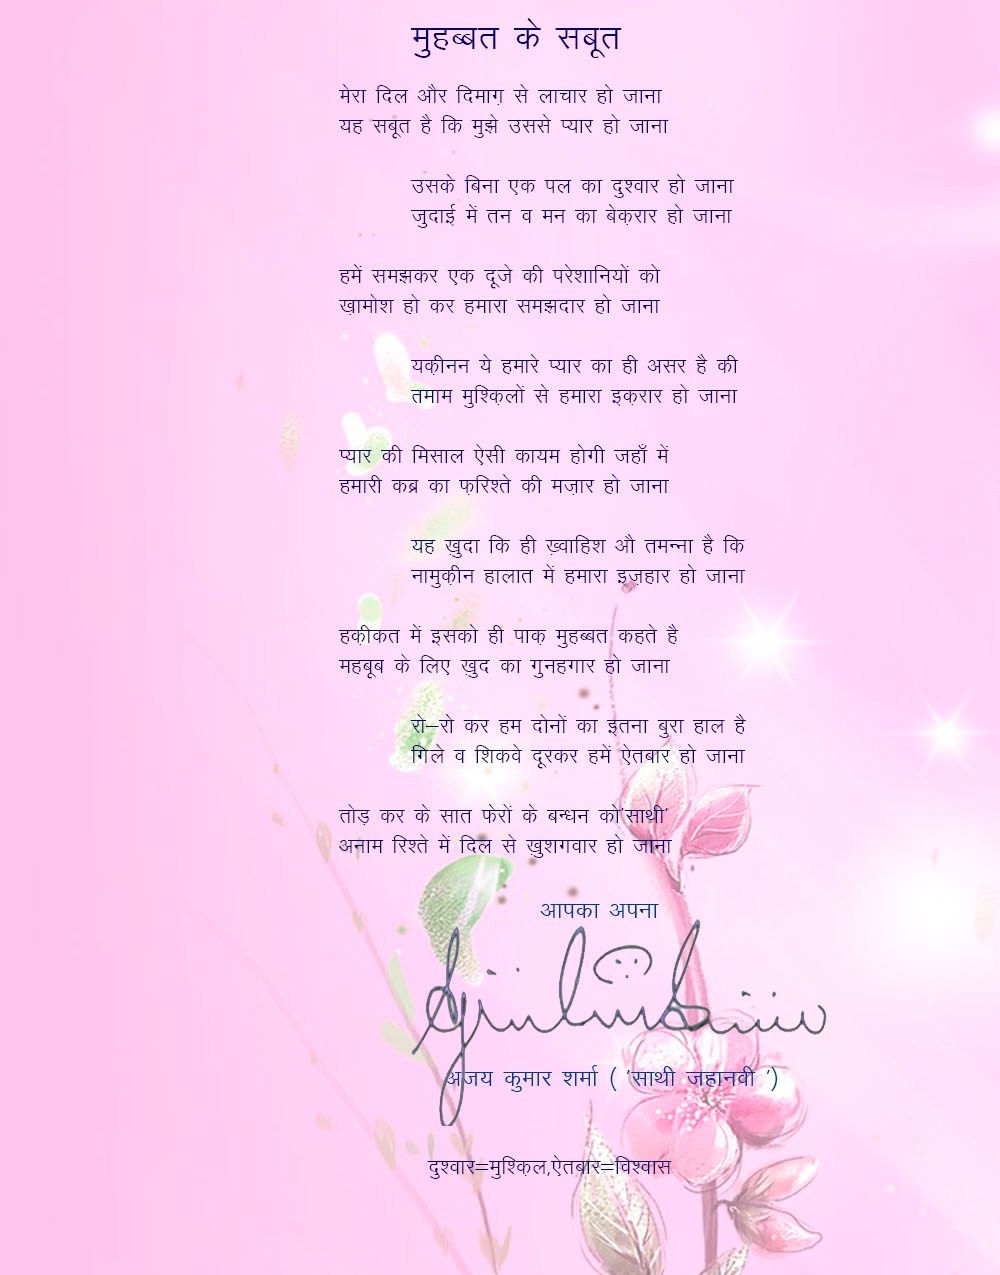 मुहब्बत के सबूत
मेरा दिल और दिमाग़ से लाचार हो जाना
यह सबूत है कि मुझे उससे प्यार हो जाना
उसके बिना एक पल का दुश्वार हो जाना
जुदाई में तन व मन का बेक़रार हो जाना
हमें समझकर एक दूजे की परेशानियों को
ख़ामोश हो कर हमारा समझदार हो जाना
यक़ीनन ये हमारे प्यार का ही असर है की
तमाम मुश्क़िलों से हमारा इक़रार हो जाना
प्यार की मिसाल ऐसी कायम होगी जहाँ में
हमारी कब्र का फ़रिश्ते की मज़ार हो जाना
यह ख़ुदा कि ही ख़्वाहिश औ तमन्ना है कि
नामुक़ीन हालात में हमारा इज़हार हो जाना
हक़ीकत में इसको ही पाक़ मुहब्बत कहते है
महबूब के लिए ख़ुद का गुनहगार हो जाना
रो–रो कर हम दोनों का इतना बुरा हाल है
गिले व शिकवे दूरकर हमें ऐतबार हो जाना
तोड़ कर के सात फेरों के बन्धन को'साथी'
अनाम रिश्ते में दिल से ख़ुशगवार हो जाना
आपका अपना
अजय कुमार शर्मा ( 'साथी जहानवी ')
दुश्वार=मुश्क़िल,ऐतबार=विश्वास